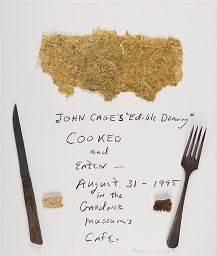 JOHN CAGE'S "Edible Drawing"
COOKED
and
EATEN —
August 31 - 1995
in the
GARDNER
museum's
CAFE.